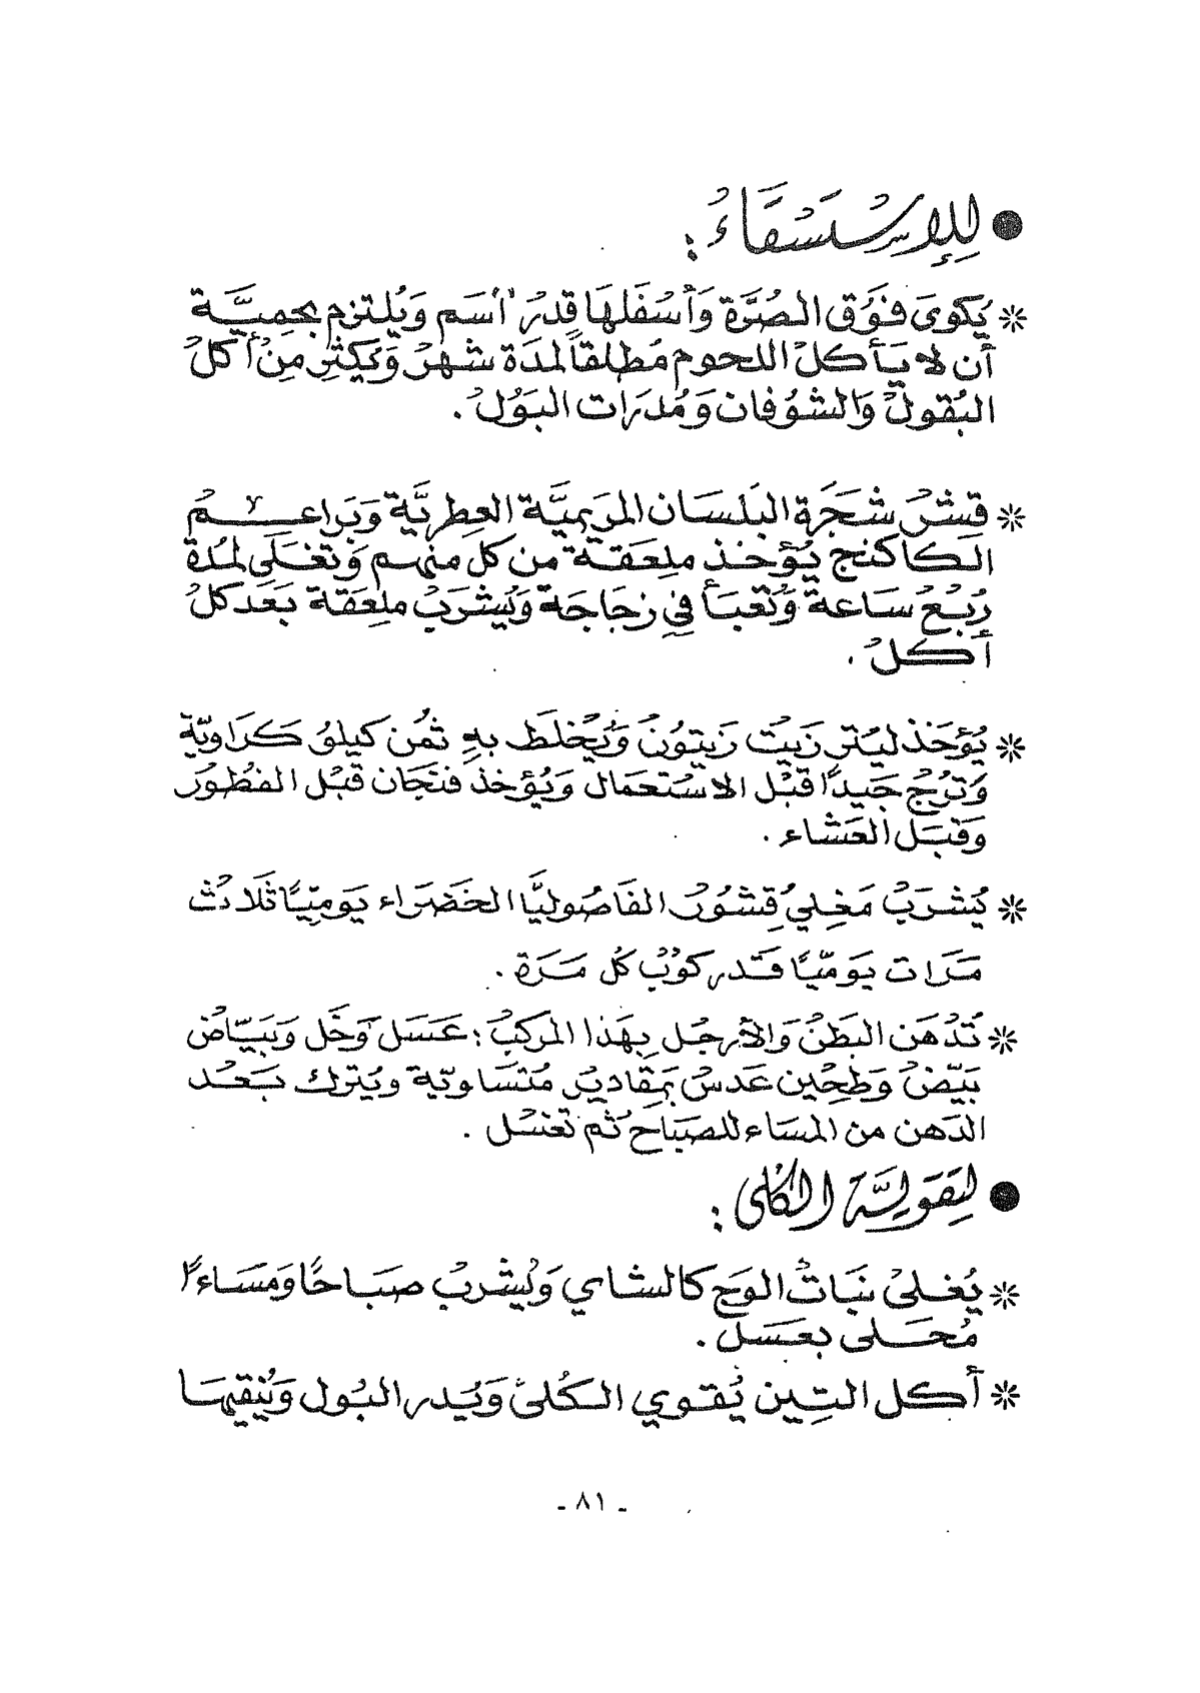 ● لِلإِسْتِسْقَاءُ :
* يُكوىَ فَوْق الصُرَّة وَأسْفَلهَا قدِرُ "اسَم وَيُلتزم بحِميَّة
أن لا يَأكلْ اللحوم مُطلقاً لمدَة شهرْ وَيَكثِر مِنْ أكلْ
البُقولْ وَالشوُفان وَمُدرَات البَوُلْ .
* قشْرْ شجَرَة البَلسَان المرَيميَّة العِطريَّة وَبَراعِمُ
الكَاكنج يُؤخذ ملعَقة من كل منهم وَتغلَى لمُدة
رُبعْ سَاعة وَتُعَبأ فِي زجَاجَة وَيُشرَبْ ملعِقة بَعَد كلْ
أكلْ .
* يُؤخَذ ليَتر زَيتْ زَيتوُنْ وَيُخْلَط بهِ ثمُن كَيلوُ كَرَاويّة
وَتُرجْ جَيداً قبْل الاسْتعمَال وَيُؤخذ فنجَان قبْل الفطُورْ
وَقبَل العَشاء .
* يُشرَبْ مَغِليُ قِشوُرْ الفَاصُوليَّا الخَضرَاء يَومِيّاً ثلَاثْ
مَرَات يَوميّاً قَدر كوُبْ كُل مَرَة .
* تُدْهَن البَطنْ وَالأرجُل بِهَذا المركبْ : عَسَل وَخَل وَبَيّاضْ
بَيّضْ وَطحِين عَدسْ بمَقاديرُ مُتسَاويّة ويُترك بَعُد
الدَهن من المسَاء للصبَاحْ ثُم تغسْل .
● لِتقَويَّة الكُلى :
* يُغلىْ نبَاتْ الوَج كالشاي وَيُشربْ صبَاحًا وَمسَاءًا
مُحَلى بعَسَلْ .
* أكل التِين يُقوي الكُلىْ وَيُدر البُول وَيُنقيهَا
- ٨١ -